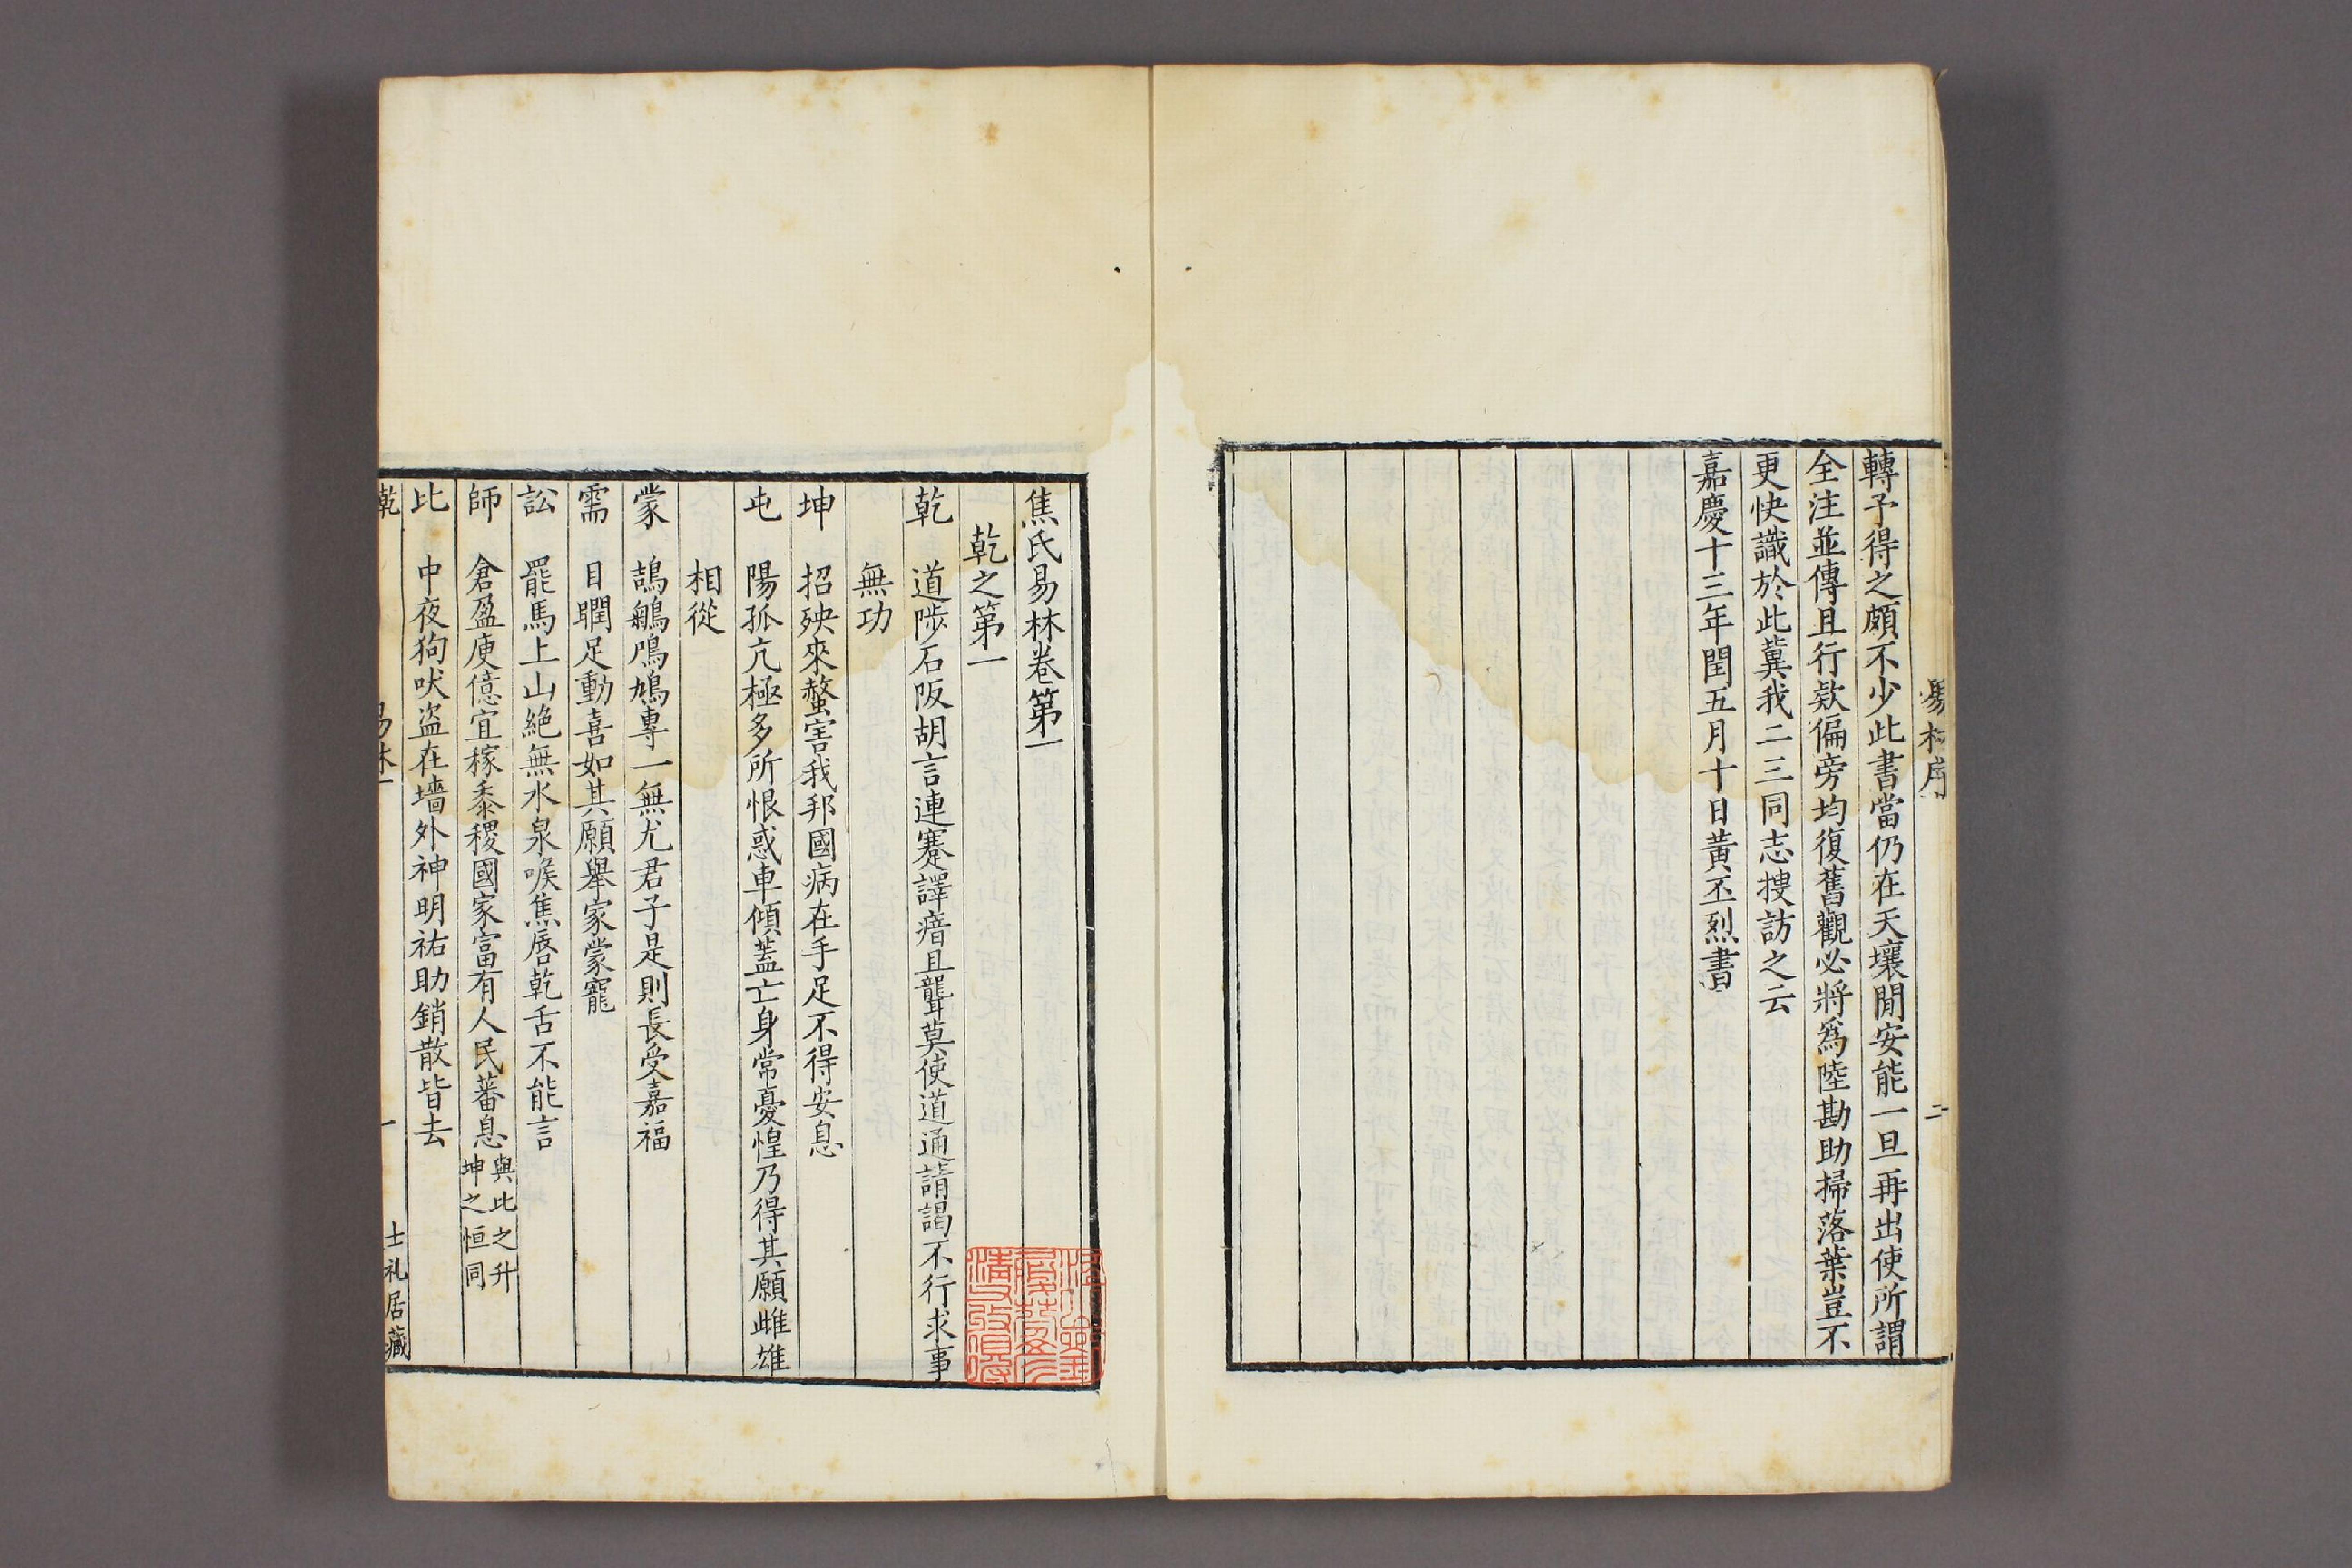 轉予得之頗不少此書當仍在天壤閒安能一旦再出使所謂
全注並傳且行欵偏旁均復舊觀必將爲陸勘助掃落葉豈不
更快識於此冀我二三同志搜訪之云
嘉慶十三年閏五月十日黃丕烈書
易林序
二
焦氏易林卷第一
乾之第一
乾 道陟石阪胡言連蹇譯瘖且聾莫使道通請謁不行求事
無功
坤 招殃來螫害我邦國病在手足不得安息
屯 陽孤亢極多所恨惑車傾蓋亡身常憂惶乃得其願雌雄
相從
蒙 鵠鵴鳲鳩專一無尤君子是則長受嘉福
需 目瞤足動喜如其願舉家蒙寵
訟 罷馬上山絶無水泉喉焦唇乾舌不能言
師 倉盈庾億宜稼黍稷國家富有人民蕃息與比之升
坤之恒同
比 中夜狗吠盗在墻外神明祐助銷散皆去
乾
易林一
一
士礼居藏